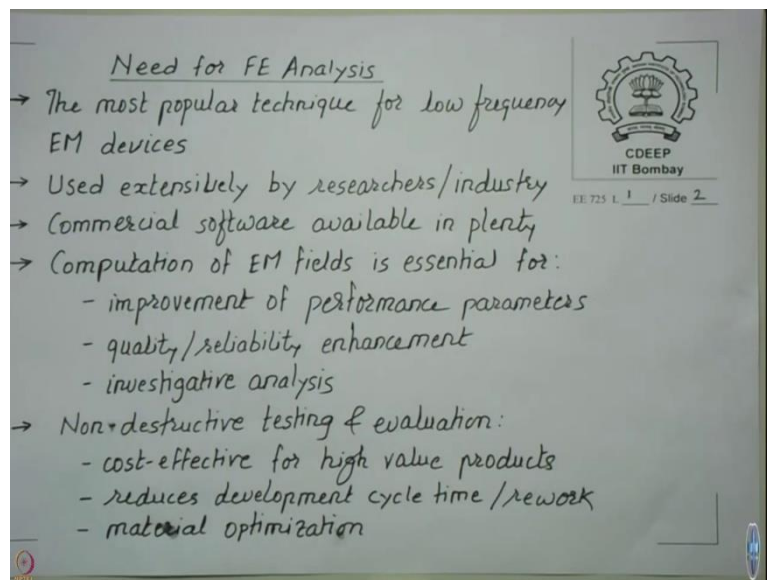 Need for FE Analysis
→ The most popular technique for low frequency
EM devices
→ Used extensively by researchers/industry
→ Commercial software available in plenty
→ Computation of EM fields is essential for:
- improvement of performance parameters
- quality/reliability enhancement
- investigative analysis
→ Non-destructive testing & evaluation:
- cost-effective for high value products
- reduces development cycle time/rework
- material optimization
CDEEP
IIT Bombay
EE 725 L 1 / Slide 2